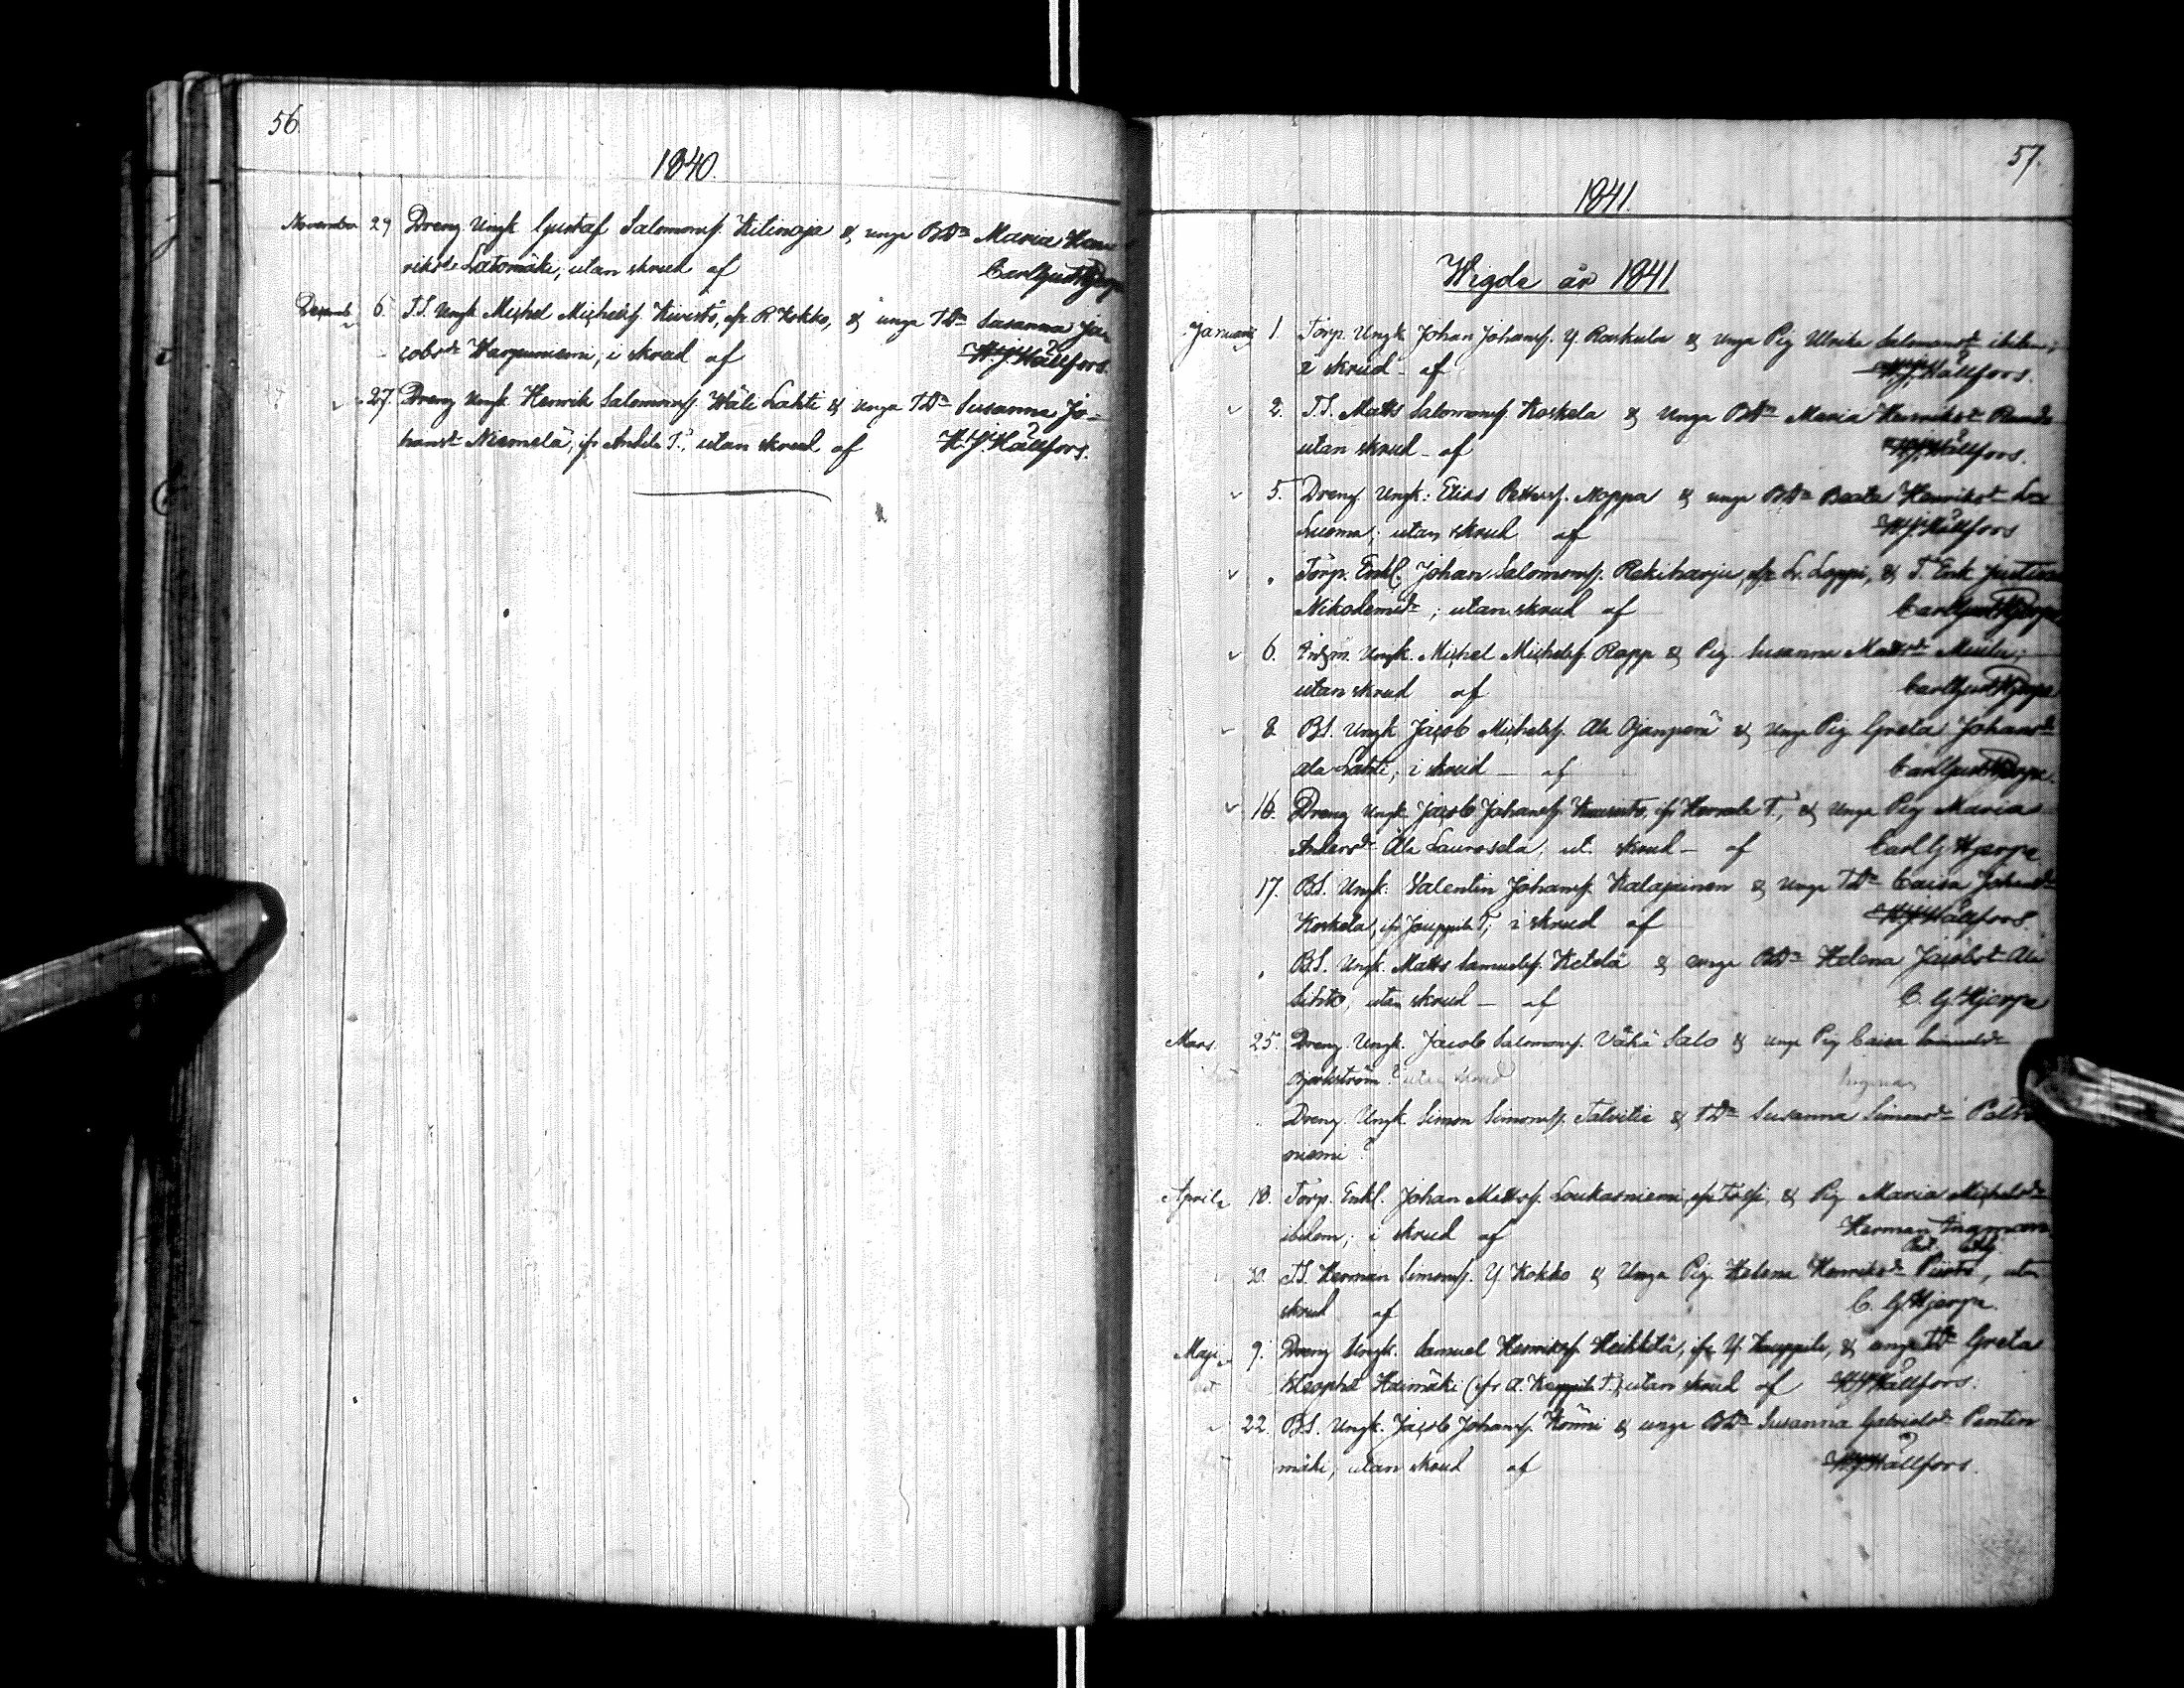 56.
1840.
November 29 Dreng Ungk Gustaf Salomonss. Kitinoja & unga BDr Maria Hen-
riksdr Latomäki, utan skrud af Carl Gust Hjerpe
Decemb 6. T.S. Ungk Michel Michelss. Kivistö, ifr R Kokko, & unga TDr Susanna Ja-
cobsdr Harjuniemi, i skrud af H. J. Hällfors.
27. Dreng Ungk Henrik Salomonss. Wäli Lahti & unga TDr Susanna Jo-
hansdr Niemelä, ifr Anttila T., utan skrud af H. J. Hällfors.
57.
1841.
Wigde år 1841
Januarij 1. Torp. Ungk Johan Johanss. Y. Raskula & unga Pig Ulrika Salomonsdr ibidem;
i skrud - af H. J. Hällfors.
2. T.S. Matts Salomonss. Koskela & Unga BDr Maria Henriksdr
utan skrud - af H. J. Hällfors.
5. Dreng. Ungk: Elias Petterss. Noppa & unga BDr Beata Henriksdr
Luoma; utan skrud af H. J. Hällfors
Torp. Enkl. Johan Salomonss. Rekiharju, ifr Lr. Loppi, & T. Enk Justina
Nikodemidr; utan skrud af Carl Gust Hjerpe
6. Inhm. Ungk. Michel Michelss. Rapp & Pig. Susanna Mattsdr Mäila;
utan skrud af Carl Gust Hjerpe
8 BS. Ungk Jacob Michelss. Ala Ojanperä & Unga Pig Greta Johansdr
Ala Lahti, i skrud - af Carl Gust Hjerpe.
16. Dreng Ungk Jacob Johanss. ifr T., & Unga Pig Maria
Andersdr Ala Laurosela, ut. skrud - af Carl G Hjerpe
17. BS. Ungk. Valentin Johanss. Kalajainen & unga TDr Caisa Johansdr
Koskela, ifr Jouppila T; i skrud af H. J. Hällfors.
BS. Ungk. Matts Samuelss. Ketelä & unga BDr Helena Jacobsdr Ala
utan skrud - af C. G. Hjerpe
Mars. 25. Dreng. Ungk. Jacob Salomonss. Vähä Salo & unga Pig Caisa Samuelsdr
Bjorkström? utan skrud Ingman
Dreng. Ungk Simon Simonss. Talvitie & TDr Susanna Simonsdr
niemi?
April 18. Torp. Enkl. Johan Mattss. Loukasniemi, ifr & Pig Maria Michelsdr
ibidem; i skrud af Herman Ingman
TS. Herman Simonss. Y Kokko & Unga Pig. Helena Henriksdr Piirto, utan
skrud af C. G. Hjerpe.
Maji 9. Dreng Ungk. Samuel Henrikss. Heikkilä, ifr Y. Kauppila, & unga TDr Greta
Haimäki (ifr A. T.) utan skrud af H. J. Hällfors.
22. BS. Ungk. Jacob Johanss. Könni & unga BDr Susanna Gabrielsdr Pentin
mäki, utan skrud af H. J. Hällfors.